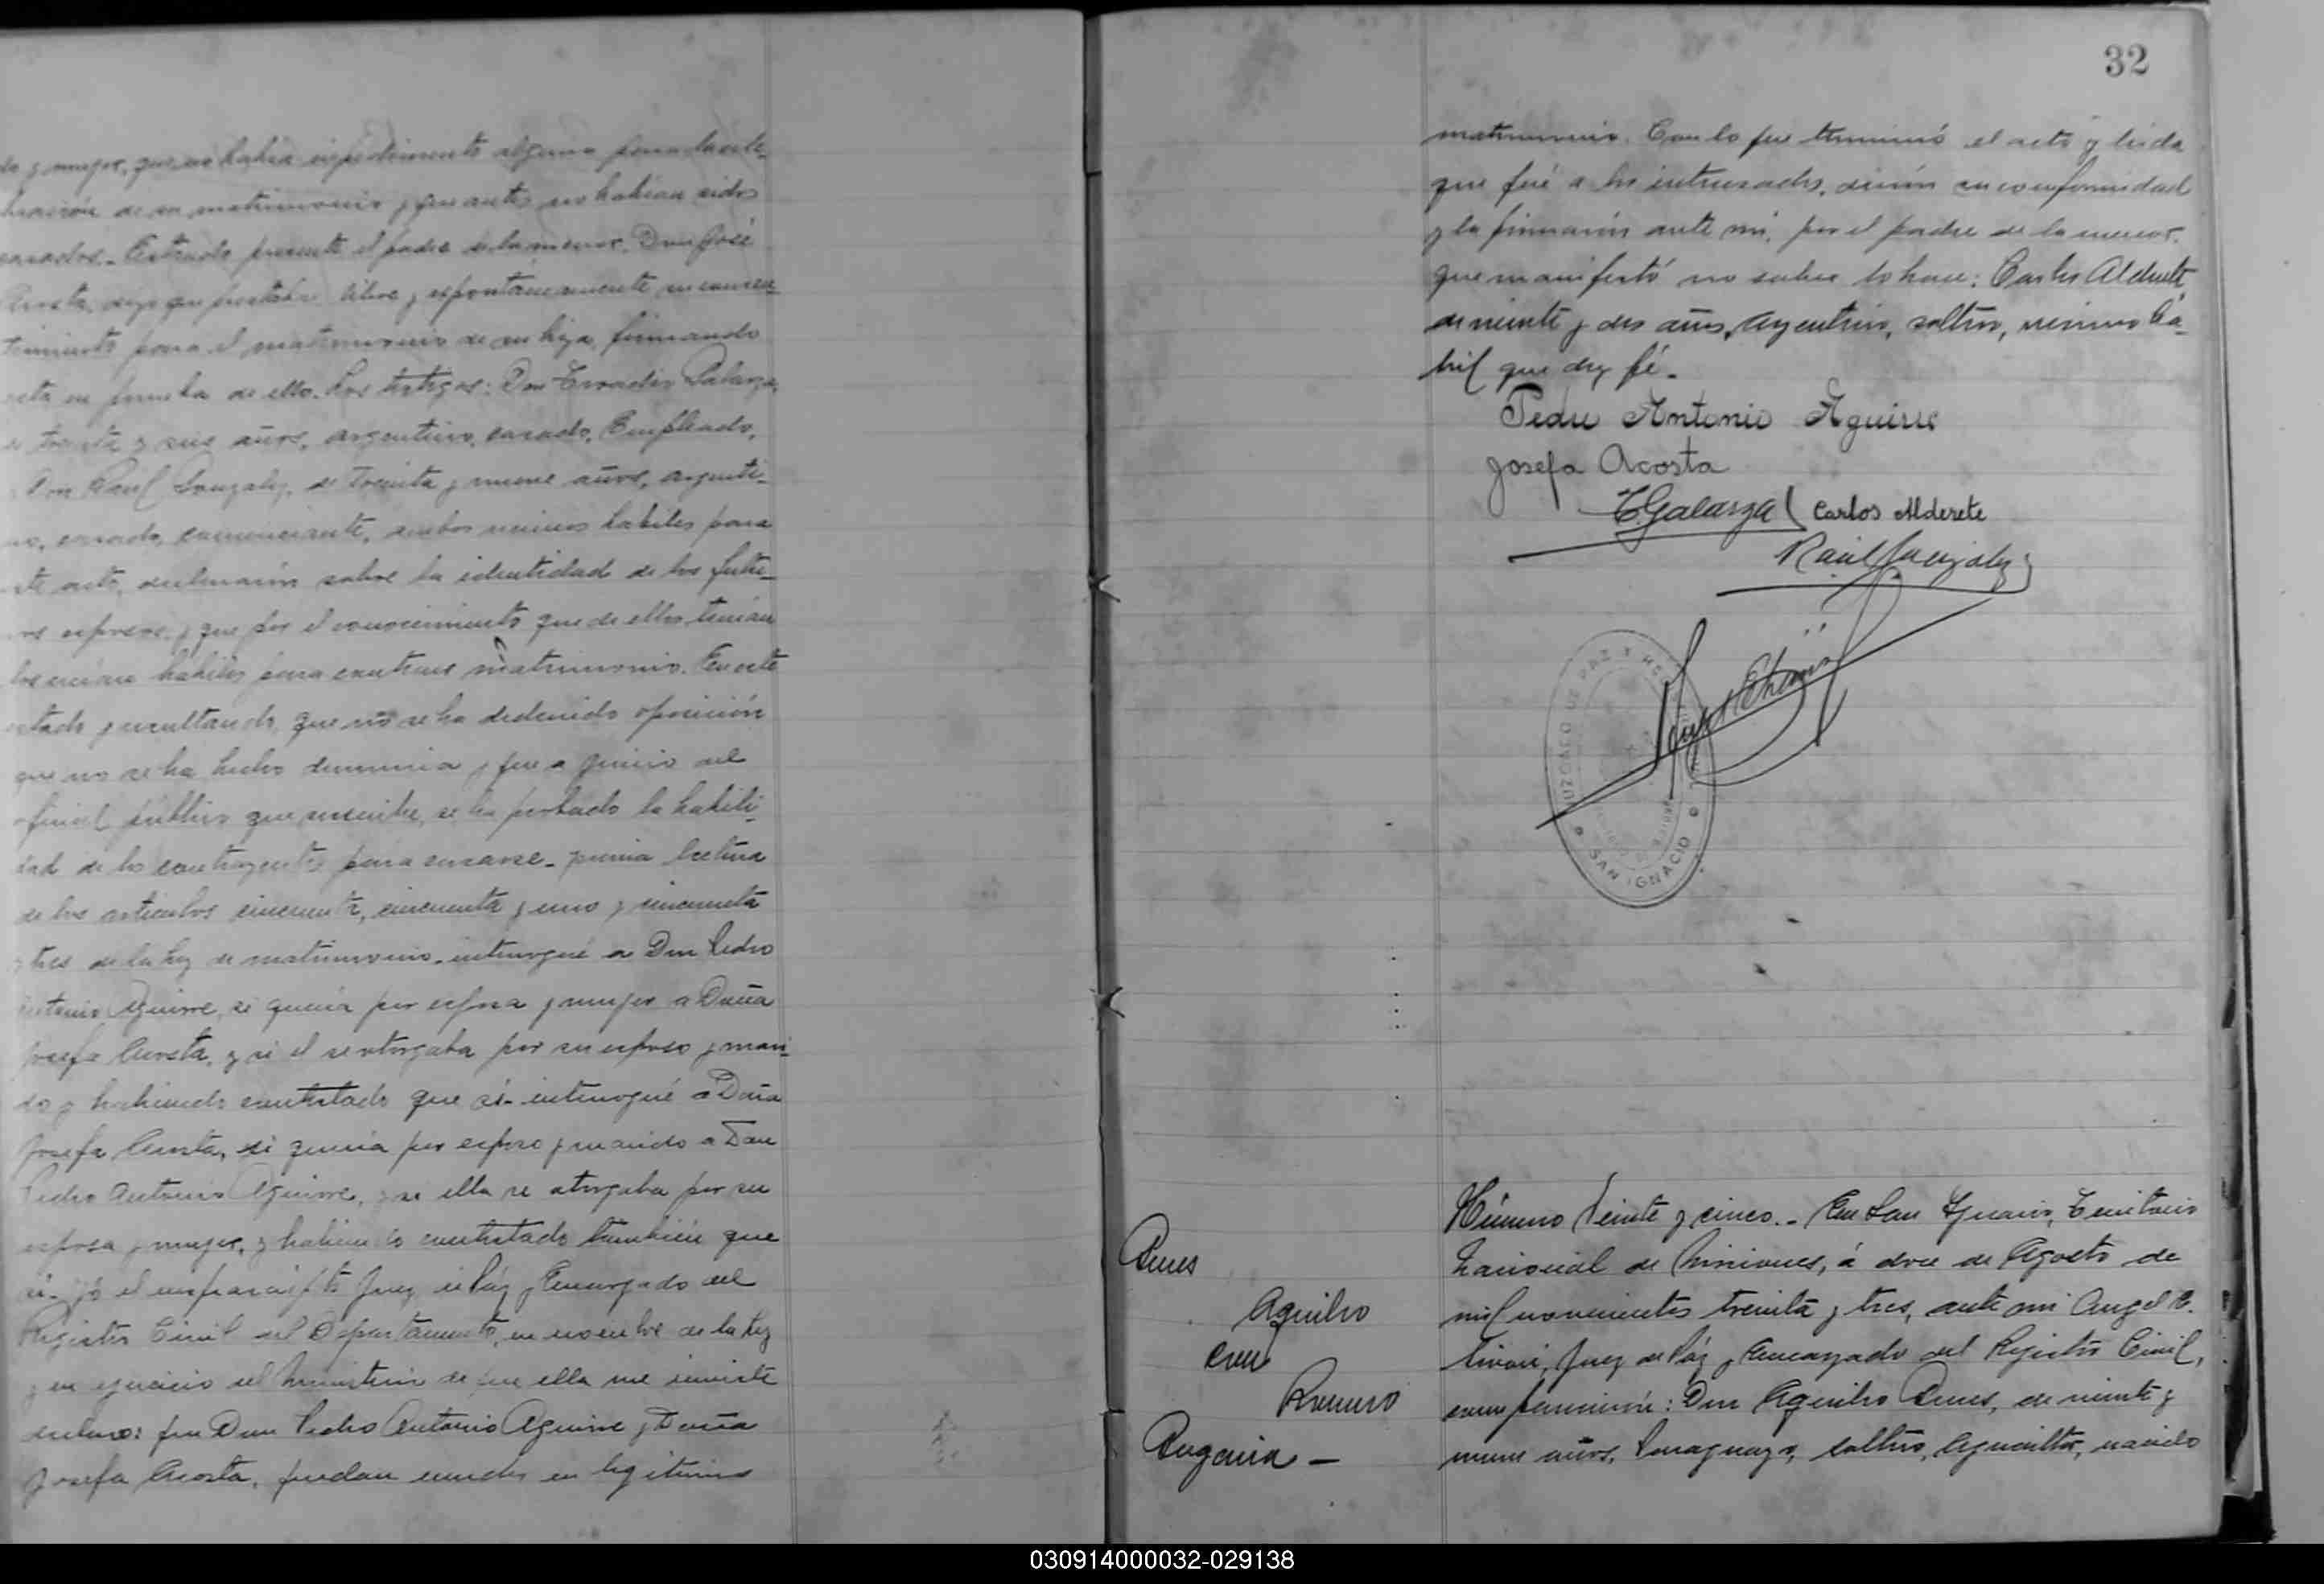 do y mujer, que no había impedimento alguno para la cele-
bración de su matrimonio y que antes no habían sidos
casados.- Estando presente el padre de la menor, Don José
Acosta, dijo que prestaba libre y espontáneamente su consen-
timiento para el matrimonio de su hija, firmando
esta en prueba de ello. Los testigos: Don Galarza,
de treinta y seis años, argentino, casado, Empleado,
y Don Raul Gonzalez, de treinta y nueve años, argenti-
no, casado, comerciante, ambos vecinos habiles para
este acto, declararón sobre la identidad de los futu-
ros esposos, y que por el conocimiento que de ellos tenían
los creían hábiles para contraer matrimonio. En este
estado y resultando, que no se ha deducido oposición
que no se ha hecho denuncia y que a juicio del
oficial público que suscribe, se ha probado la habili-
dad de los contrayentes para casarse- previa lectura
de los artículos cincuenta, cincuenta y uno y cincuenta
y tres de la ley de matrimonio, interrogué a Don Pedro
Antonio Aguirre, si quería por esposa y mujer a Doña
Josefa Acosta, y si el se otorgaba por su esposo y mari-
do y habiendo contestado que sí- interrogué a Doña
Josefa Acosta, si quería por esposo y marido a Don
Pedro Antonio Aguirre, y si ella se otorgaba por su
esposa y mujer, y habiendo contestado también que
sí- yó el infrascripto Juez de Páz y Encargado del
Registro Civil del Departamento, en nombre de la ley
y en ejercicio del Ministerio de que ella me inviste
declaro: que Don Pedro Antonio Aguirre y Doña
Josefa Acosta, quedan unidos en legitimo
32
matrimonio. Con lo que terminó el acto y leida
que fué a los interesados, dieron su conformidad
y la firmarón ante mi, por el padre de la menor,
que manifestó no saber lo hace: Carlos Alderete
de veinte y dos años, Argentino, soltero, vecino há-
bil que doy fé.-
Pedro Antonio Aguirre
Josefa Acosta
T. Galarza Carlos Alderete
Raúl Gonzalez
JUZGADO DE PAZ Y
SAN IGNACIO
Número Veinte y cinco.- En San Ignacio, Territorio
Nacional de Misiones, á doce de Agosto de
mil novecientos treinta y tres, ante mi Angel
Juez de Páz y Encargado del Registro Civil,
comparecieron: Don Aquilio de veinte y
nueve años, Paraguayo, soltero, Agricultor, nacido
Aquilio
con
Romero